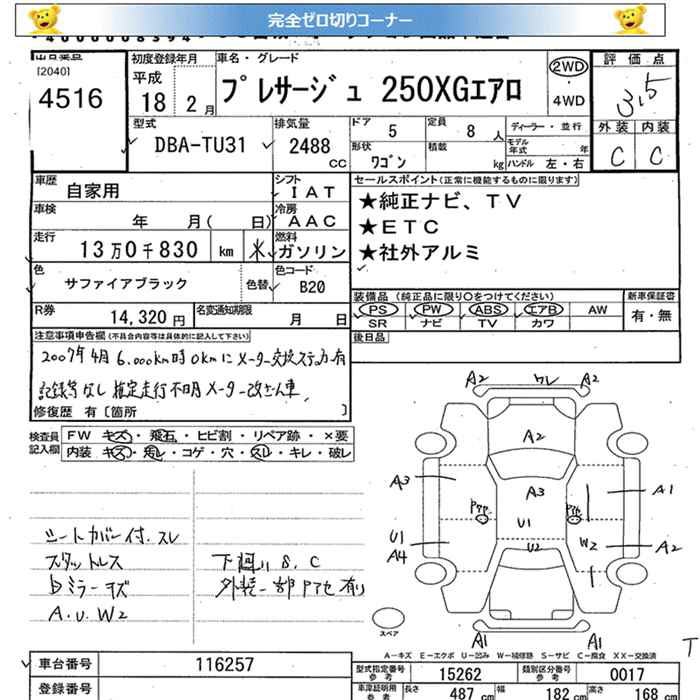 完全ゼロ切りコーナー
[2040]
4516
初度登録年月
平成
18 2月
車名・グレード
プレサージュ 250XGエアロ
2WD
・
4WD
評価点
3.5
外装 内装
C C
型式
DBA-TU31
排気量
2488
CC
ドア
5
定員
8 人
形状
ワゴン
積載
kg
ディーラー・並行
モデル年式 年
ハンドル 左・右
車歴
自家用
シフト
IAT
車検
年 月( 日)
冷房
AAC
走行
13万0千830 km
燃料
ガソリン
色
サファイアブラック
色替
色コード
B20
R券
14,320円
名変通知期限
月 日
セールスポイント(正常に機能するものに限ります)
★純正ナビ、TV
★ETC
★社外アルミ
装備品(純正品に限り○をつけてください)
新車保証書
PS PW ABS エアB AW
有・無
SR ナビ TV カワ
後日品
注意事項申告欄(不具合内容等は具体的に記入して下さい)
2007年4月 6,000km時 0kmにメーター交換ステッカ有
記録等なし 推定走行不明 メーター改ざん車
修復歴 有〔箇所 〕
検査員
記入欄
FW キズ・飛石・ヒビ割・リペア跡・×要
内装 キズ・汚レ・コゲ・穴・スレ・キレ・破レ
シートカバー付. スレ
スタットレス
Dミラーキズ
A.U.W2
下廻り S.C
外装一部Pアセ有り
A2 ワレ A2
A2
A3 A3 A1
U1
U1 W2 A2
A4 U2
A1 A1
スペア
A-キズ E-エクボ U-凹み W-補修跡 S-サビ C-腐食 XX-交換済
T
車台番号
116257
登録番号
型式指定番号
参考
15262
類別区分番号
参考
0017
車庫証明用
参考
長さ 487 cm 幅 182 cm 高さ 168 cm